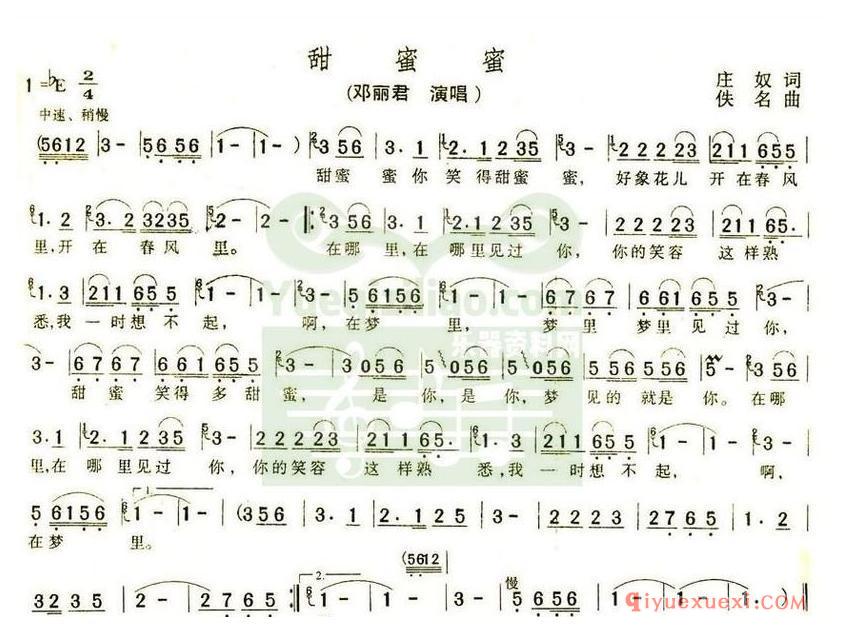 甜 蜜 蜜
1=♭E 2/4 (邓丽君 演唱) 庄 奴 词
佚 名 曲
中速、稍慢
(5612 | 3- | 5656 | 1- | 1- ) | 3 56 | 3. 1 | 2.1235 | 3- | 2 2 2 23 | 211655 |
甜蜜 蜜你 笑得甜蜜 蜜, 好象花儿 开在春风
1. 2 | 3. 23235 | 2- | 2- |: 3 56 | 3. 1 | 2.1235 | 3- | 22223 | 21165. |
里,开在 春风 里。 在哪 里,在 哪里见过 你, 你的笑容 这样熟
1. 3 | 211655 | 3- | 5 6156 | 1- | 1- | 6767 | 6 7 6 5 |
悉,我 一时想不 起, 啊,在梦 里, 梦里 梦里见过你,
3- | 6767 | 661655 | 3- | 3056 | 5056 | 5056 | 5 56556 | 5- | 3- |
甜蜜 笑得多甜蜜, 是你,是你,梦 见的就是 你。在哪
3. 1 | 2. 1235 | 3- | 22223 | 21165. | 1. 3 | 211655 | 1- | 3- |
里,在 哪里见过 你,你的笑容 这样熟 悉,我 一时想不 起, 啊,
5 6156 | 1- | 1- | (356 | 3. 1 | 2. 125 | 3- | 2222 3 | 2765 | 1. 2 |
在梦 里。
(5612
3235 | 2- | 2- | 2765 :| 2. 1- | 1- | 3- :| 慢 5656 | 1- | 1- |
Yueqiziliao.com
乐器资料网
qiyuexuexi.COM